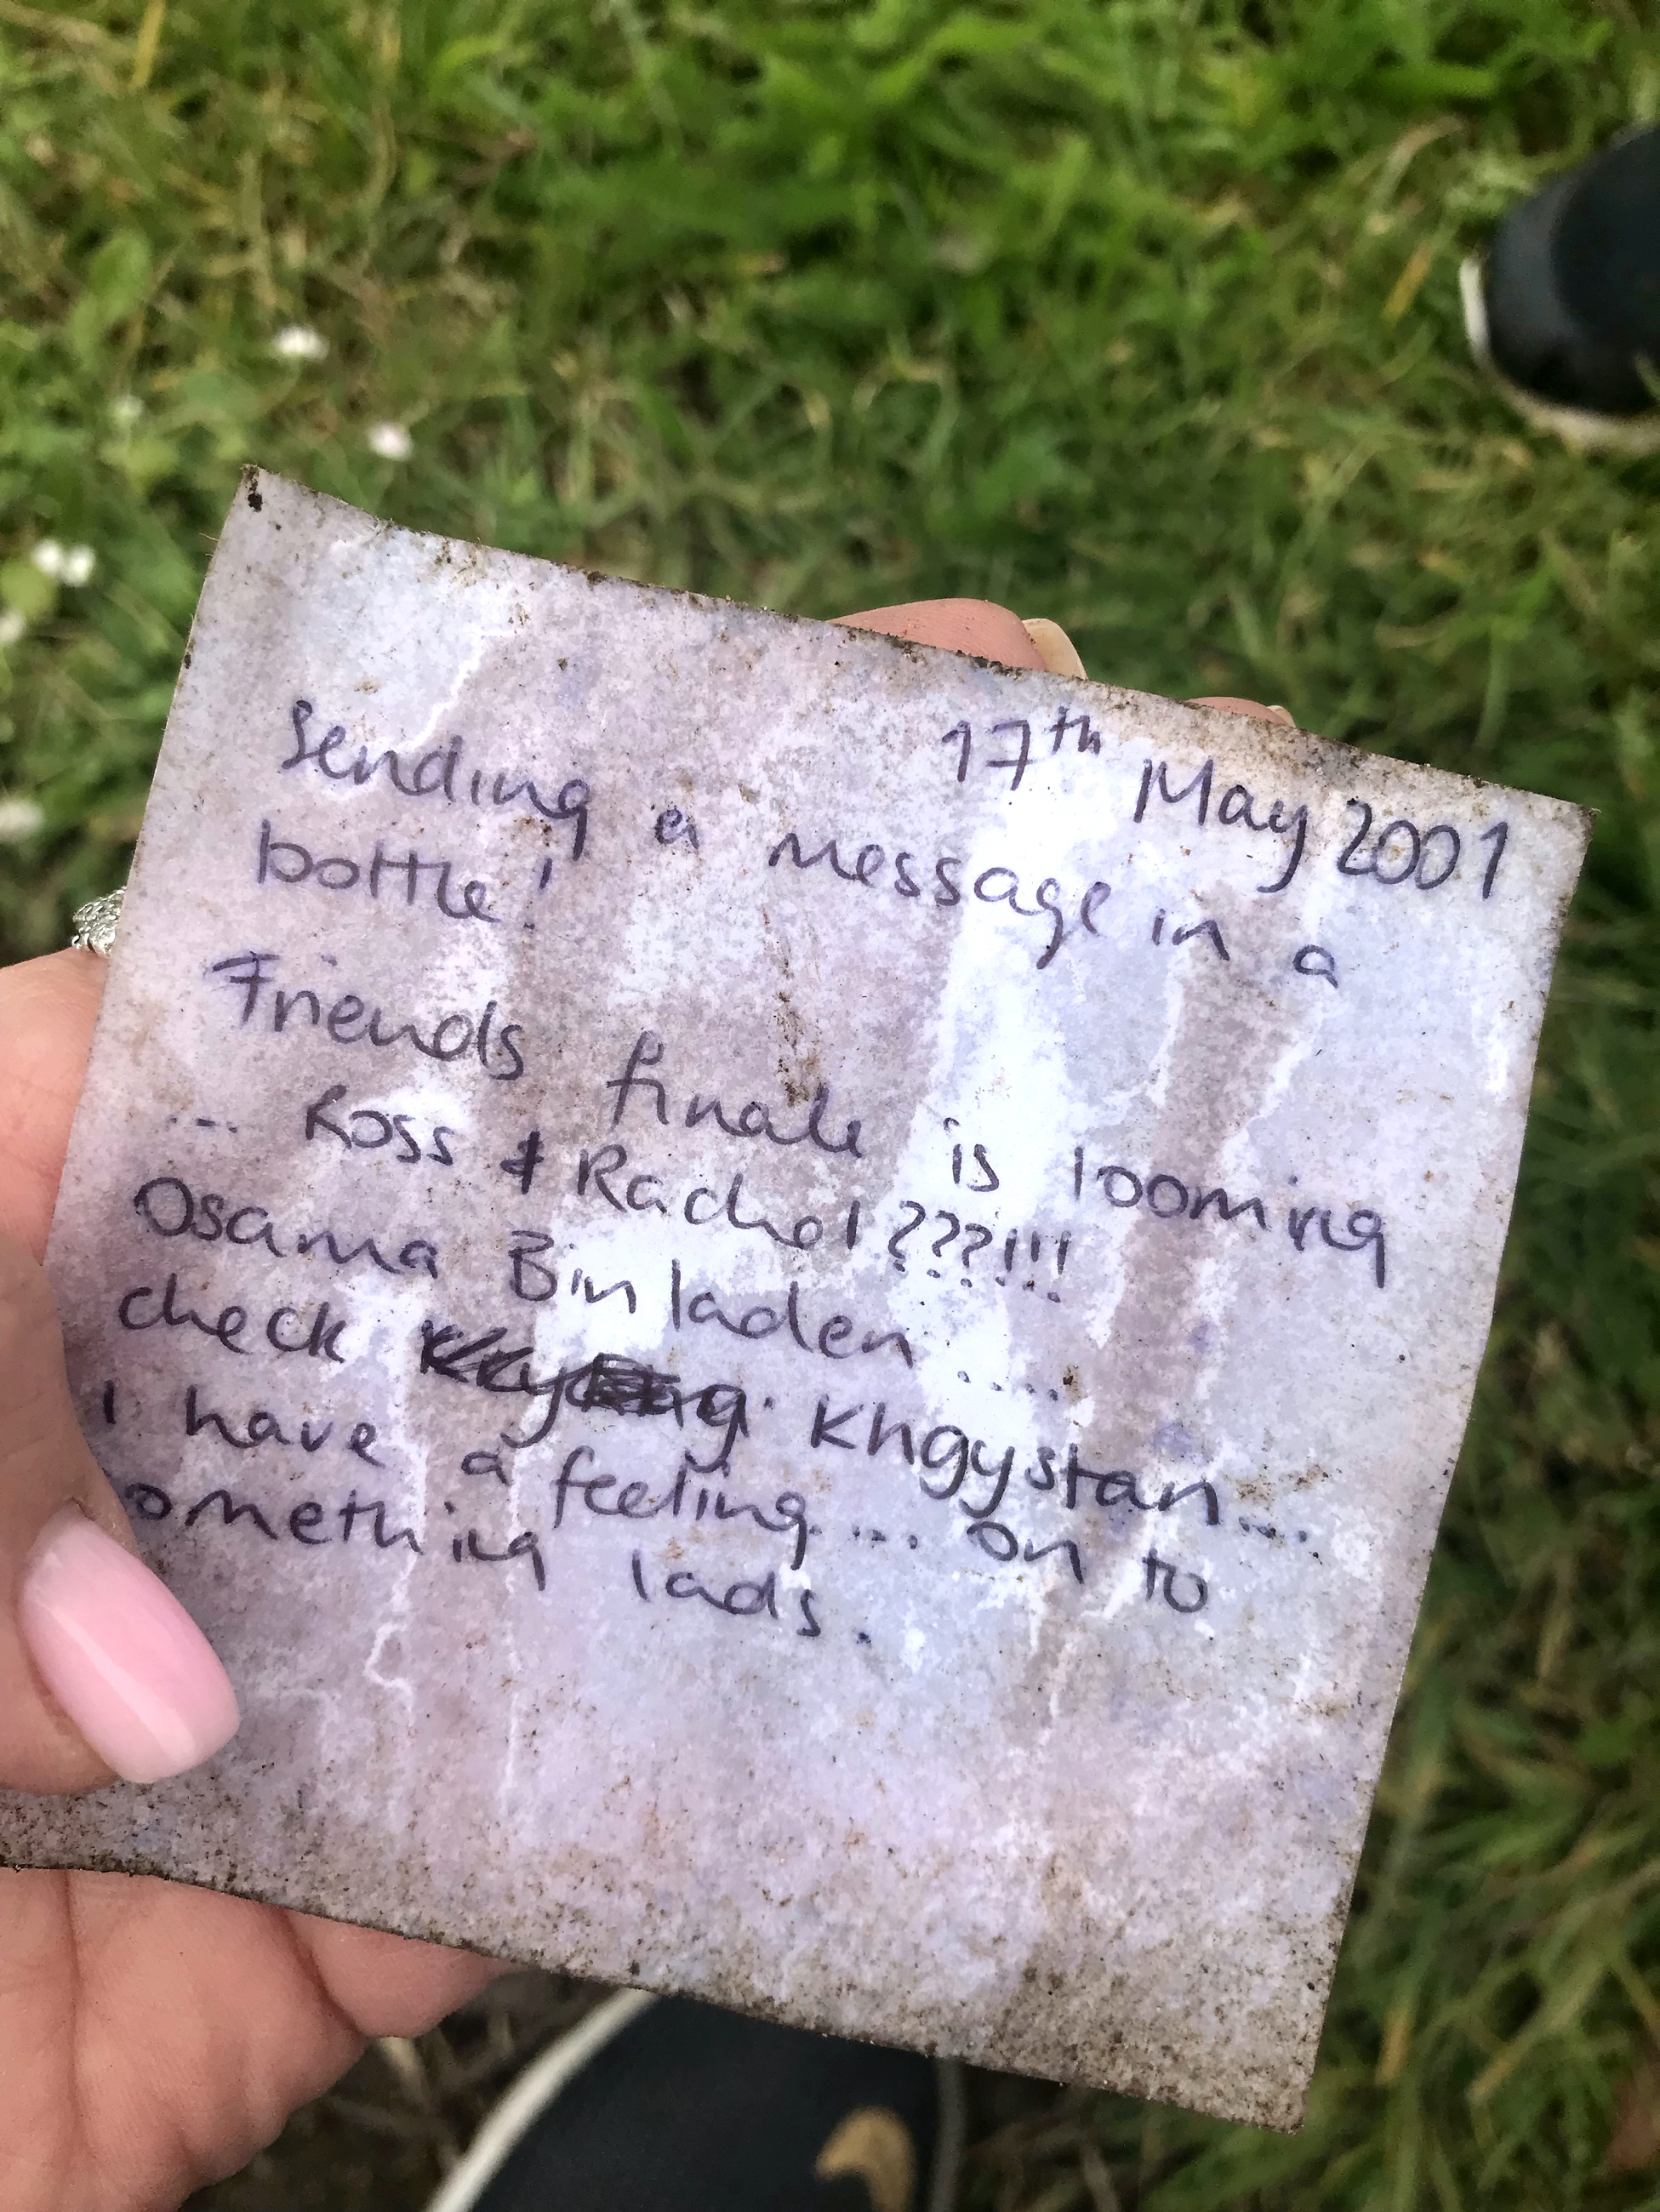 17th May 2001
Sending a message in a
bottle!
Friends finale is looming
... Ross & Rachel???!!!
Osama Bin laden ....
check Khgystan...
I have a feeling.... on to
omething lads.